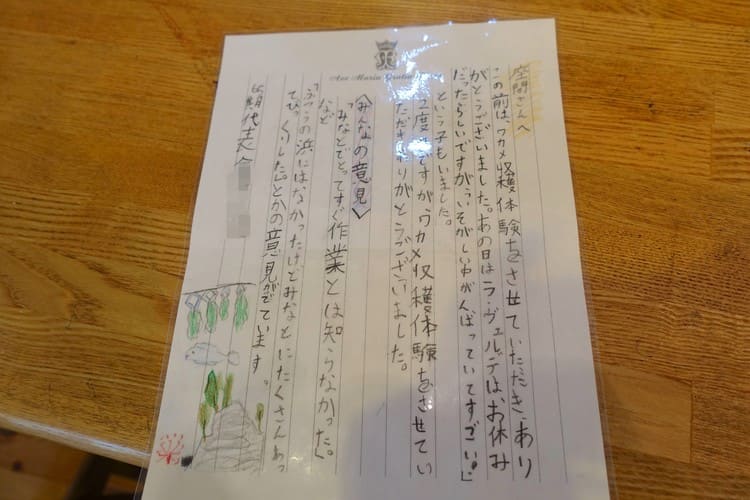 Ave Maria
座間さんへ
この前は、ワカメ収穫体験をさせていただき、あり
がとうございました。あの日はラ・ヴェルデは、お休み
だったらしいですが「いそがしい中がんばっていてすごい。」
という子もいました。
2度目ですがワカメ収穫体験をさせてい
ただきありがとうございました。
〈みんなの意見〉
「みなとでとってすぐ作業とは知らなかった。」
など
「ふつうの浜にはなかったけどみなとにたくさんあっ
てびっくりした。」とかの意見がでています。
代表